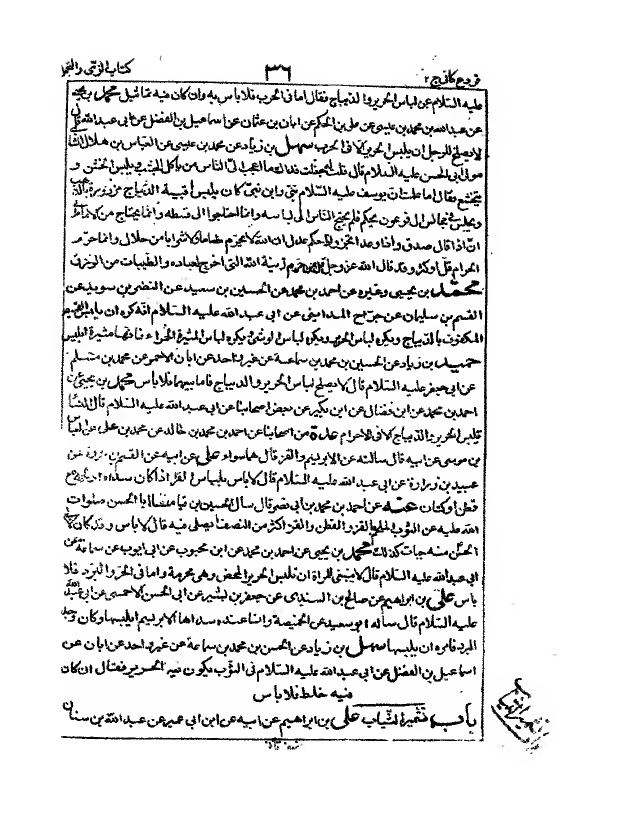 فروع كافى ج ٢ ٣٦ كتاب الزىّ والتجمل
عليه السّلام عن لباس الحرير والديباج فقال امّا فى الحرب فلا باس به وان كان فيه تماثيل محمّد بن يحيى
عن عبد الله بن محمد بن عيسى عن على بن الحكم عن ابان بن عثمان عن اسماعيل بن الفضل عن ابى عبد الله قال
لا يصلح للرجل ان يلبس الحرير الا فى الحرب سهل بن زياد عن محمد بن عيسى عن العباس بن هلال الشامى
مولى ابى الحسن عليه السلام قال قلت له جعلت فداك ما اعجب الى الناس من ياكل الجشب ويلبس الخشن و
يتخشع فقال اما علمت ان يوسف عليه السلام نبى وابن نبى كان يلبس اقبية الديباج مزرورة بالذهب
ويجلس فى مجالس ال فرعون يحكم فلم يحتج الناس الى لباسه وانما احتاجوا الى قسطه وانما يحتاج من الامام
ان اذا قال صدق واذا وعد انجز واذا حكم عدل ان الله لا يحرم طعاما ولا شرابا من حلال وانما حرم
الحرام قل او كثر وقد قال الله عز وجل قل من حرم زينة الله التى اخرج لعباده والطيبات من الرزق
محمّد بن يحيى وغيره عن احمد بن محمد عن الحسين بن سعيد عن النضر بن سويد عن
القسم بن سليمان عن جراح المداينى عن ابى عبد الله عليه السلام انه كره ان يلبس القميص
المكفوف بالديباج ويكره لباس الحرير ويكره لباس الوشى ويكره لباس الميثرة الحمراء فانها ميثرة ابليس
حميد بن زياد عن الحسين بن محمد بن سماعة عن غير واحد عن ابان الاحمر عن محمد بن مسلم
عن ابى جعفر عليه السلام قال لا يصلح لباس الحرير والديباج فاما بيعهما فلا باس محمد بن يحيى عن
احمد بن محمد عن ابن فضال عن ابن بكير عن بعض اصحابنا عن ابى عبد الله عليه السلام قال النساء
تلبس الحرير والديباج الا فى الاحرام عدة من اصحابنا عن احمد بن محمد بن خالد عن محمد بن على عن العباس
بن موسى عن ابيه قال سالته عن الابريسم والقز قال هما سواء على عن ابيه عن القسم بن عروة عن
عبيد بن زرارة عن ابى عبد الله عليه السلام قال لا باس بلباس القز اذا كان سداه او لحمته من
قطن او كتان عنه عن احمد بن محمد بن ابى نصر قال سال الحسين بن قياما ابا الحسن صلوات
الله عليه عن الثوب الملحم بالقز والقطن والقز اكثر من النصف ايصلى فيه قال لا باس وقد كان لابى
الحسن منه جبات كذلك محمد بن يحيى عن احمد بن محمد عن ابن محبوب عن ابى ايوب عن سماعة عن
ابى عبد الله عليه السلام قال لا ينبغى للمراة ان تلبس الحرير المحض وهى محرمة واما فى الحر والبرد فلا
باس على بن ابراهيم عن صالح بن السندى عن جعفر بن بشير عن ابى الحسن الاحمسى عن ابى عبد الله
عليه السلام قال ساله ابو سعيد عن الخميصة وانا عنده سداها الابريسم ايلبسها وكان وجد
البرد فامره ان يلبسها سهل بن زياد عن الحسن بن محمد بن سماعة عن غير واحد عن ابان عن
اسماعيل بن الفضل عن ابى عبد الله عليه السلام فى الثوب يكون فيه الحرير فقال ان كان
فيه خلط فلا باس
باب تشمير الثياب على بن ابراهيم عن ابيه عن ابن ابى عمير عن عبد الله بن سنان